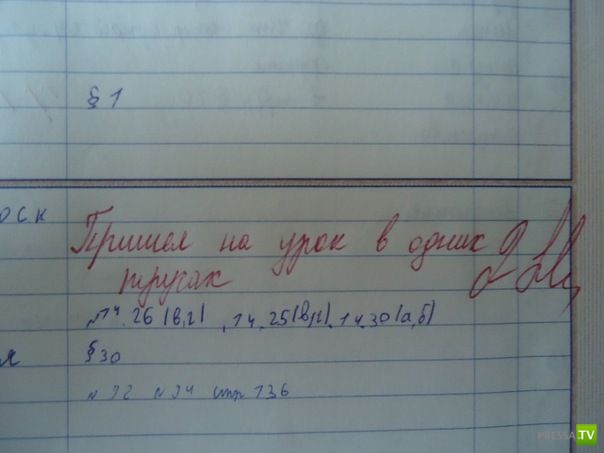 § 1
оск
Пришел на урок в одних
трусах 2
№14.26(в,г), 14.25(в,г), 14.30(а,б)
я § 30
№ 92 № 94 стр 136
PRESSA.TV